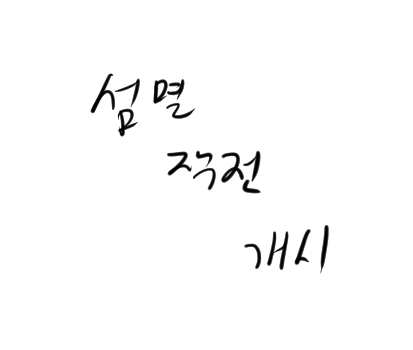 섬멸
작전
개시